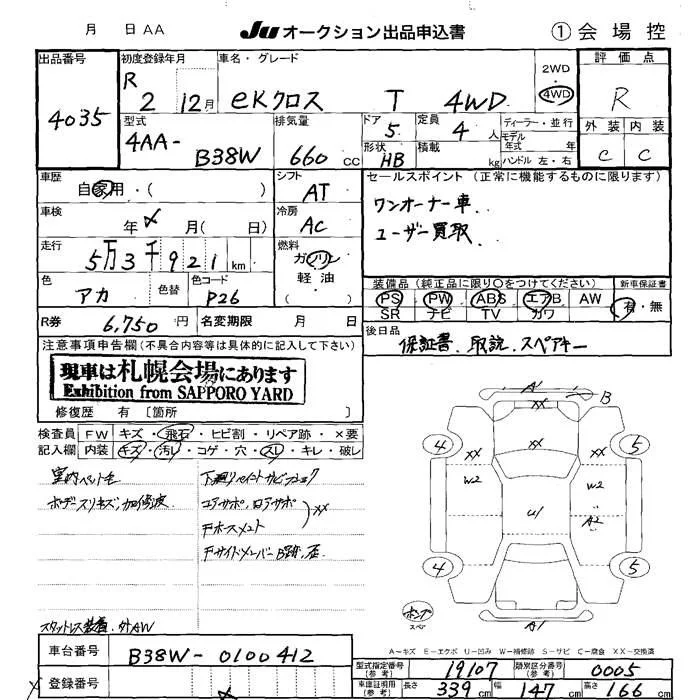 月 日 AA Ju オークション出品申込書 ① 会場控
出品番号 4035
初度登録年月 R 2 12月
車名・グレード eKクロス T 4WD
2WD 4WD
評価点 R
外装 内装
C C
型式 4AA-B38W
排気量 660 cc
ドア 5
形状 HB
定員 4 人
積載 kg
ディーラー・並行
モデル年式 年
ハンドル 左・右
車歴 自家用・( )
シフト AT
車検 年 月( 日)
冷房 AC
走行 5万3千921 km
燃料 ガソリン 軽油 ( )
色 アカ 色替 色コード P26
セールスポイント(正常に機能するものに限ります)
ワンオーナー車
ユーザー買取
装備品(純正品に限り○をつけてください) 新車保証書
PS PW ABS エアB AW 有・無
SR ナビ TV カワ
R券 6,750円 名変期限 月 日
後日品 保証書、取説、スペアキー
注意事項申告欄(不具合内容等は具体的に記入して下さい)
現車は札幌会場にあります
Exhibition from SAPPORO YARD
修復歴 有 〔箇所
検査員 FW キズ・飛石・ヒビ割・リペア跡・×要
記入欄 内装 キズ・汚レ・コゲ・穴・スレ・キレ・破レ
A B XX
4 XX XX 5
W2 W2
U1 A2
4 5
スペア A1
スタットレス装着、外AW
A〜キズ E〜エクボ U〜凹み W〜補修跡 S〜サビ C〜腐食 XX〜交換済
車台番号 B38W-0100412
型式指定番号(参考) 19107 類別区分番号(参考) 0005
登録番号
車庫証明用(参考) 長さ 339 cm 幅 147 cm 高さ 166 cm